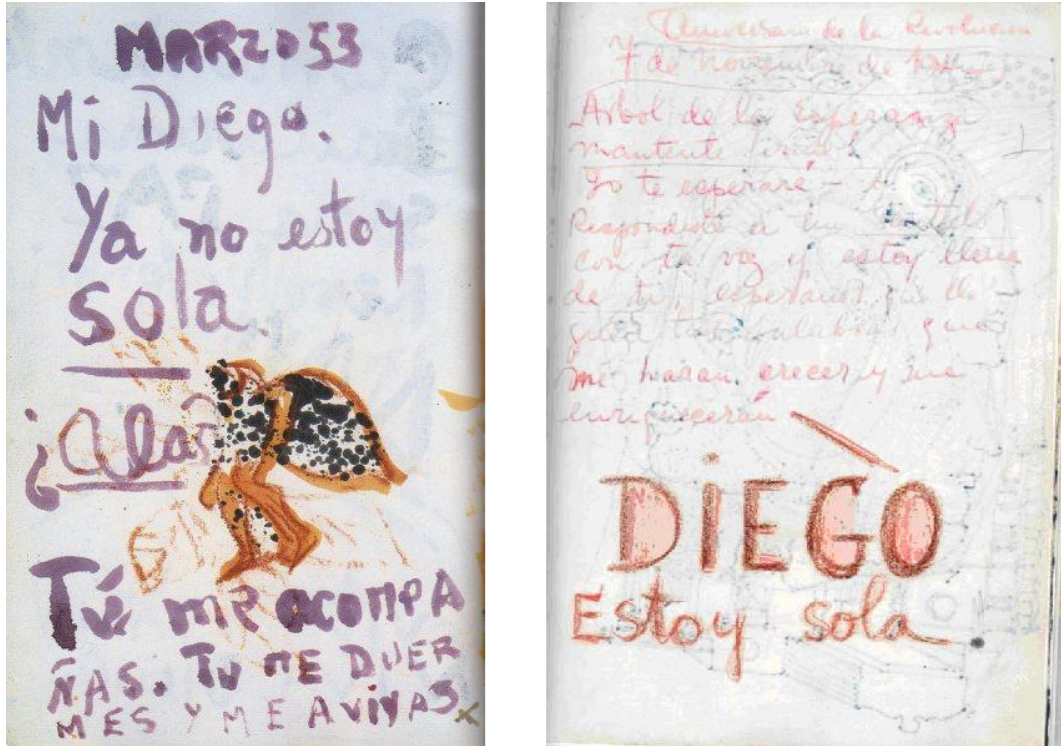 MARZO 53
Mi Diego.
Ya no estoy
sola.
¿Alas?
Tú me ACOMPA
ÑAS. TU ME DUER
MES Y ME AVIVAS
Aniversario de la Revolucion
7 de Noviembre de
Arbol de la Esperanza
mantente firme!
Yo te esperaré -
Respondiste a un
con tu voz y estoy llena
de ti, esperando que
tus palabras que
me harán crecer y me
enriquecerán
DIEGO
Estoy sola